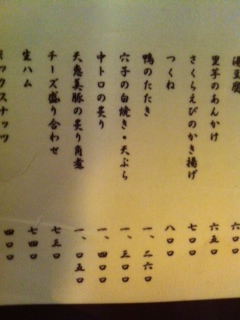 湯豆腐 六〇〇
里芋のあんかけ 六五〇
さくらえびのかき揚げ 七〇〇
つくね 八〇〇
鴨のたたき 一、二六〇
穴子の白焼き・天ぷら 一、三〇〇
中トロの炙り 一、四〇〇
天恵美豚の炙り角煮 一、〇五〇
チーズ盛り合わせ 七三〇
生ハム 七四〇
ミックスナッツ 四〇〇